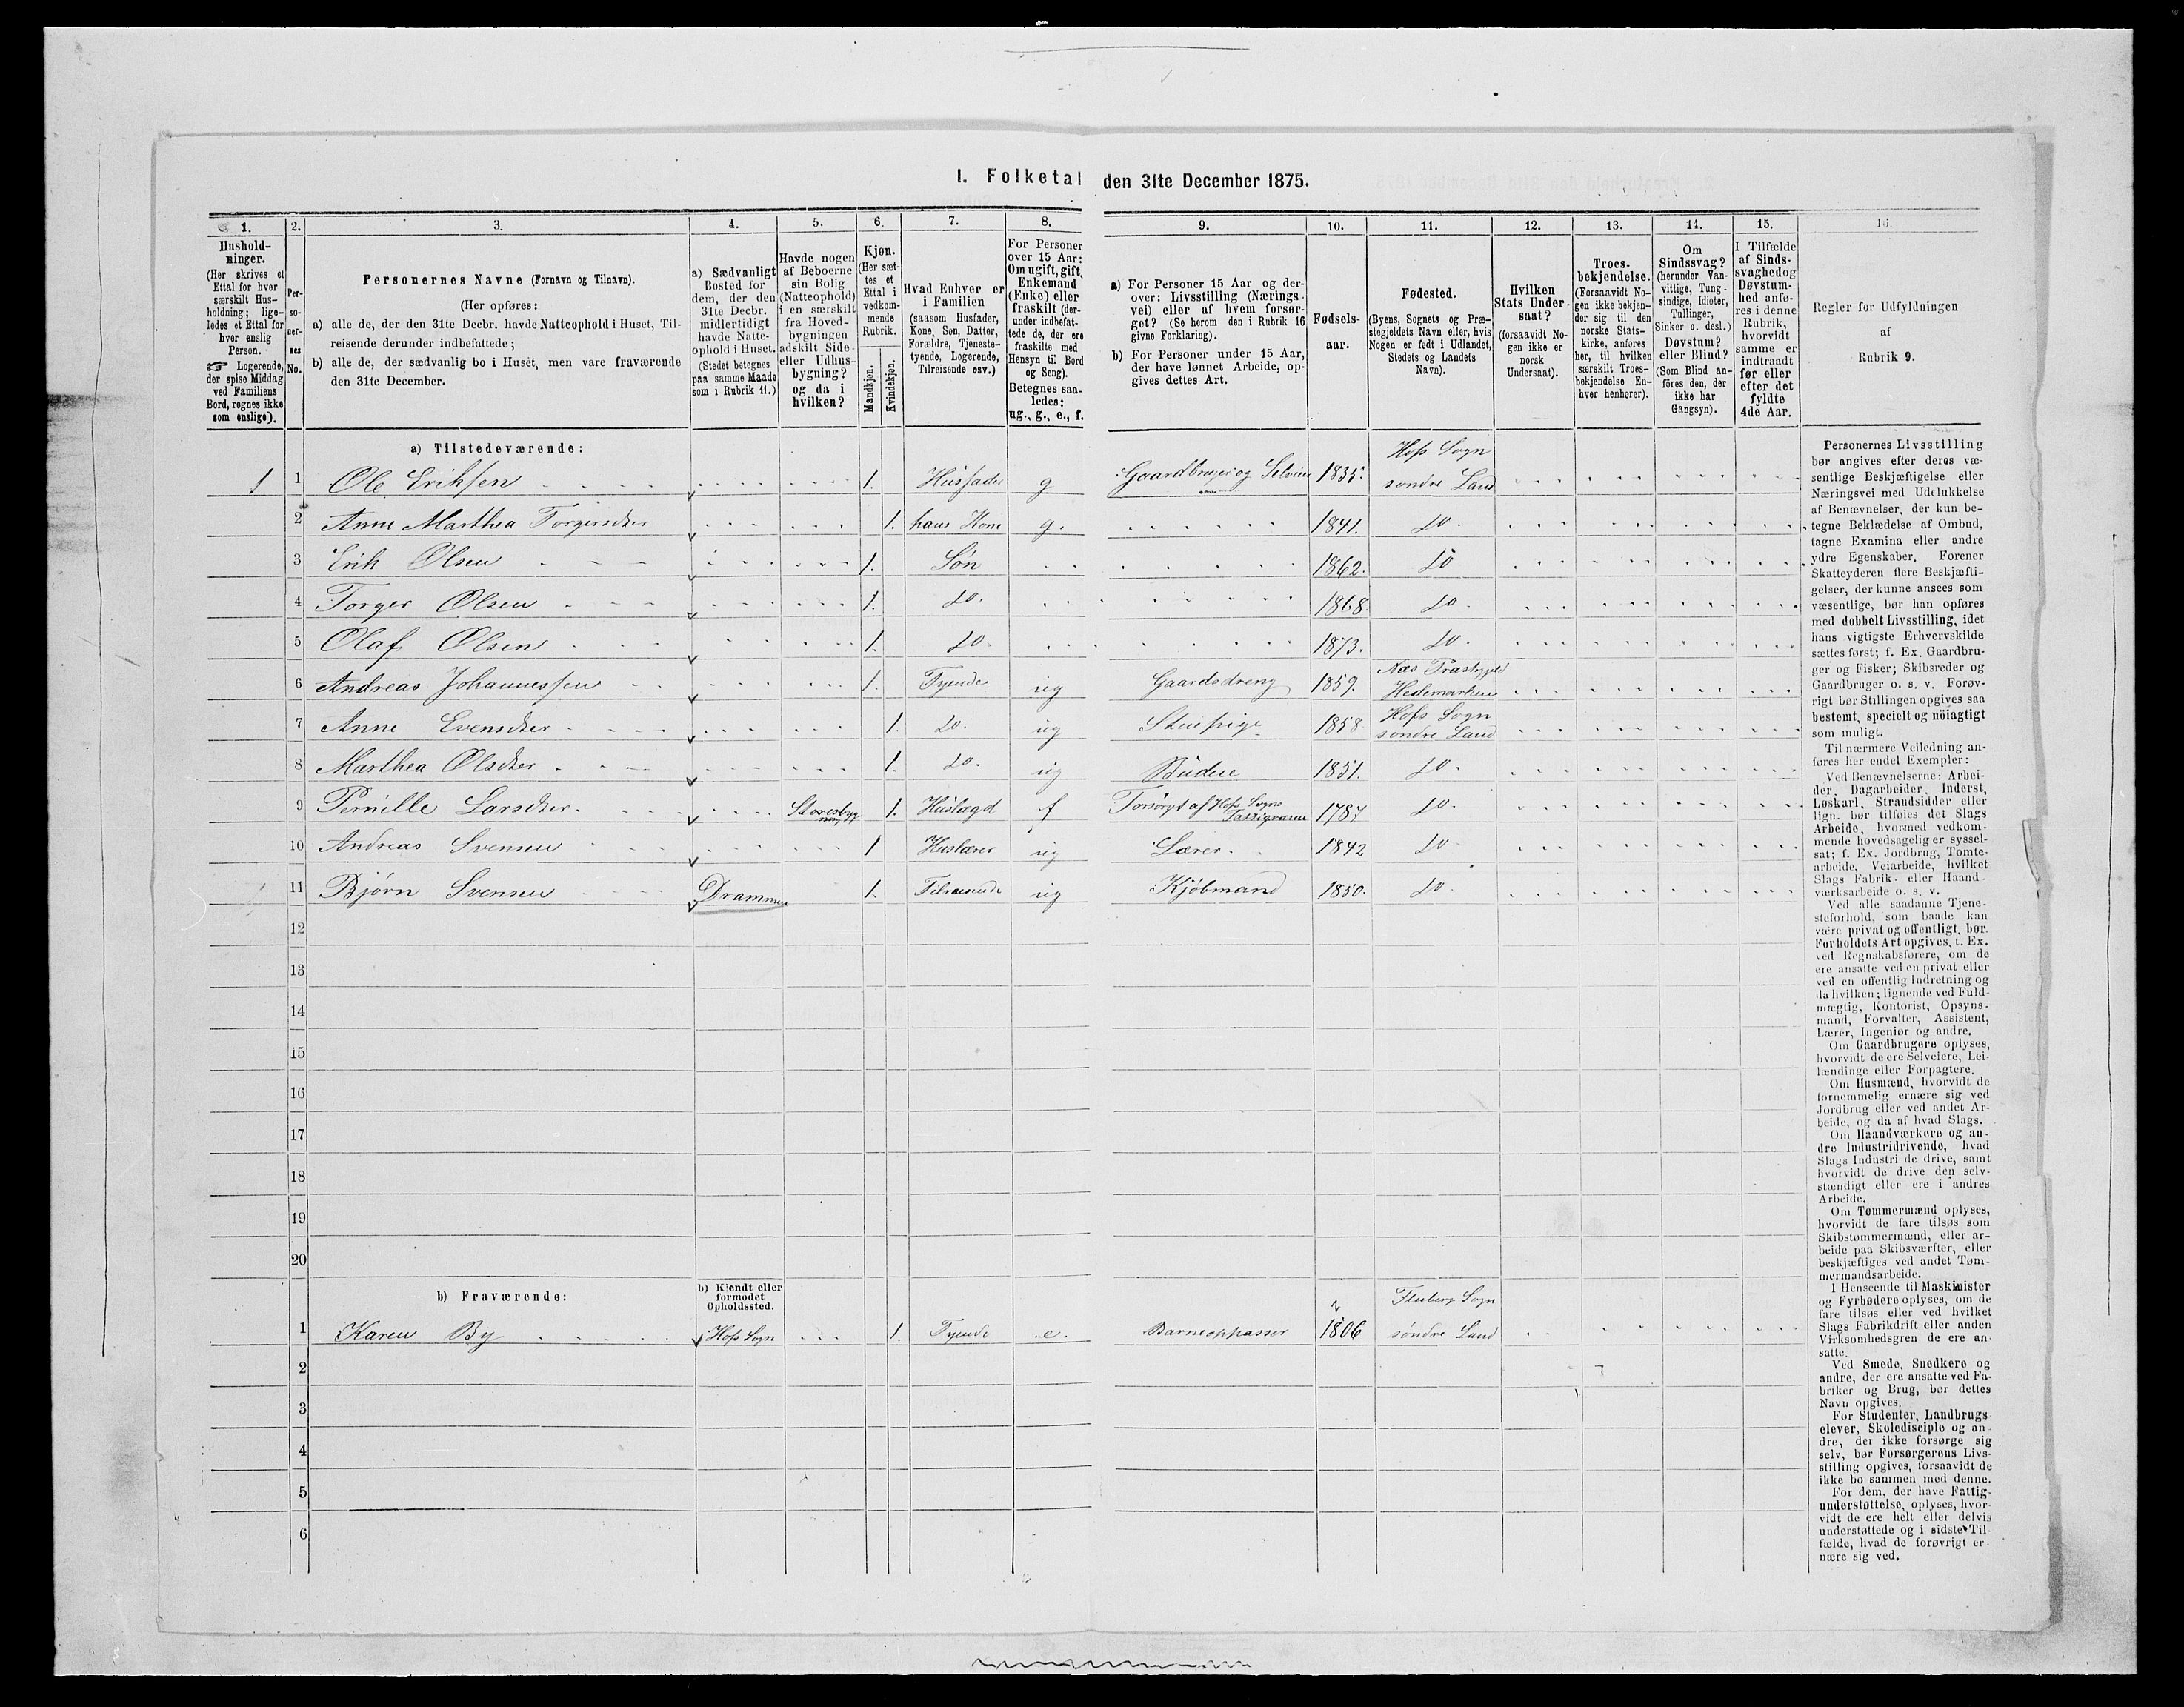 I. Folketal den 31te December 1875.
1. 2. 3. 4. 5. 6. 7. 8. 9. 10. 11. 12. 13. 14. 15. 16.
Hushold-
ninger.
(Her skrives et
Ettal for hver
særskilt Hus-
holdning; lige-
ledes et Ettal for
hver enslig
Person.
☞ Logerende,
der spise Middag
ved Familiens
Bord, regnes ikke
som enslige).
Per-
so-
ner-
nes
No.
Personernes Navne (Fornavn og Tilnavn).
(Her opføres:
a) alle de, der den 31te Decbr. havde Natteophold i Huset, Til-
reisende derunder indbefattede;
b) alle de, der sædvanlig bo i Huset, men vare fraværende
den 31te December.
a) Sædvanligt
Bosted for
dem, der den
31te Decbr.
midlertidigt
havde Natte-
ophold i Huset.
(Stedet betegnes
paa samme Maade
som i Rubrik 11.)
Havde nogen
af Beboerne
sin Bolig
(Natteophold)
i en særskilt
fra Hoved-
bygningen
adskilt Side-
eller Udhus-
bygning?
og da i
hvilken?
Kjøn.
(Her sæt-
tes et
Ettal i
vedkom-
mende
Rubrik.
Mandkjøn.
Kvindekjøn.
Hvad Enhver er
i Familien
(saasom Husfader,
Kone, Søn, Datter,
Forældre, Tjeneste-
tyende, Logerende,
Tilreisende osv.)
For Personer
over 15 Aar:
Om ugift, gift,
Enkemand
(Enke) eller
fraskilt (der-
under indbefat-
tede de, der ere
fraskilte med
Hensyn til Bord
og Seng).
Betegnes saa-
ledes:
ug., g., e., f.
a) For Personer 15 Aar og der-
over: Livsstilling (Nærings-
vei) eller af hvem forsør-
get? (Se herom den i Rubrik 16
givne Forklaring).
b) For Personer under 15 Aar,
der have lønnet Arbeide, op-
gives dettes Art.
Fødsels-
aar.
Fødested.
(Byens, Sognets og Præ-
stegjeldets Navn eller, hvis
Nogen er født i Udlandet,
Stedets og Landets
Navn).
Hvilken
Stats Under-
saat?
(forsaavidt No-
gen ikke er
norsk
Undersaat).
Troes-
bekjendelse.
(Forsaavidt No-
gen ikke bekjen-
der sig til den
norske Stats-
kirke, anføres
her, til hvilken
særskilt Troes-
bekjendelse En-
hver henhører).
Om
Sindssvag?
(herunder Van-
vittige, Tung-
sindige, Idioter,
Tullinger,
Sinker o. desl.)
Døvstum?
eller Blind?
(Som Blind an-
føres den, der
ikke har
Gangsyn).
I Tilfælde
af Sinds-
svaghed og
Døvstum-
hed anfø-
res i denne
Rubrik,
hvorvidt
samme er
indtraadt
før eller
efter det
fyldte
4de Aar.
Regler for Udfyldningen
af
Rubrik 9.
a) Tilstedeværende:
Hofs Sogn
1 1 Ole Eriksen 1. Husfader g Gaardbruger og Selveier 1835. søndre Land
2 Anne Marthea Torgersdter 1. hans Kone g. 1841. do.
3 Erik Olsen 1. Søn 1862. do
4 Torger Olsen 1. do. 1868. do.
5 Olaf Olsen 1. do. 1873. do.
Næs Præstegjeld
6 Andreas Johannessen 1. Tyende ug Gaardsdreng 1859. Hedemarken
Hofs Sogn
7 Anne Evensdter 1. do. ug Stuepige 1858 søndre Land
8 Marthea Olsdter 1. do. ug Budeie 1851. do.
9 Pernille Larsdter. Stuesbyg- 1. Huslægd f Forsørgt af Hofs Sogns 1787 do.
ning Fattigvæsen
10 Andreas Svensen 1 Huslærer ug Lærer. 1842 do
11 Bjørn Svensen Drammen 1. Tilreisende ug Kjöbmand 1850. do.
12
13
14
15
16
17
18
19
20
b) Fraværende:
b) Kjendt eller
formodet
Opholdssted.
Fluberg Sogn
1 Karen By Hofs Sogn 1. Tyende e. Barneoppasser 1806 søndre Land
2
3
4
5
6
Personernes Livsstilling
bør angives efter deres væ-
sentlige Beskjæftigelse eller
Næringsvei med Udelukkelse
af Benævnelser, der kun be-
tegne Beklædelse af Ombud,
tagne Examina eller andre
ydre Egenskaber. Forener
Skatteyderen flere Beskjæfti-
gelser, der kunne ansees som
væsentlige, bør han opføres
med dobbelt Livsstilling, idet
hans vigtigste Erhvervskilde
sættes først; f. Ex. Gaardbru-
ger og Fisker; Skibsreder og
Gaardbruger o. s. v. Forøv-
rigt bør Stillingen opgives saa
bestemt, specielt og nöiagtigt
som muligt.
Til nærmere Veiledning an-
føres her endel Exempler:
Ved Benævnelserne: Arbei-
der, Dagarbeider, Inderst,
Løskarl, Strandsidder eller
lign. bør tilføies det Slags
Arbeide, hvormed vedkom-
mende hovedsagelig er syssel-
sat; f. Ex. Jordbrug, Tomte-
arbeide, Veiarbeide, hvilket
Slags Fabrik- eller Haand-
værksarbeide o. s. v.
Ved alle saadanne Tjene-
steforhold, som baade kan
være privat og offentligt, bør
Forholdets Art opgives, t. Ex.
ved Regnskabsførere, om de
ere ansatte ved en privat eller
ved en offentlig Indretning og
da hvilken; lignende ved Fuld-
mægtig, Kontorist, Opsyns-
mand, Forvalter, Assistent,
Lærer, Ingeniør og andre.
Om Gaardbrugere oplyses,
hvorvidt de ere Selveiere, Lei-
lændinge eller Forpagtere.
Om Husmænd, hvorvidt de
fornemmelig ernære sig ved
Jordbrug eller ved andet Ar-
beide, og da af hvad Slags.
Om Haandværkere og an-
dre Industridrivende, hvad
Slags Industri de drive, samt
hvorvidt de drive den selv-
stændigt eller ere i andres
Arbeide.
Om Tømmermænd oplyses,
hvorvidt de fare tilsøs som
Skibstømmermænd, eller ar-
beide paa Skibsværfter, eller
beskjæftiges ved andet Tøm-
mermandsarbeide.
I Henseende til Maskinister
og Fyrbødere oplyses, om de
fare tilsøs eller ved hvilket
Slags Fabrikdrift eller anden
Virksomhedsgren de ere an-
satte.
Ved Smede, Snedkere og
andre, der ere ansatte ved Fa-
briker og Brug, bør dettes
Navn opgives.
For Studenter, Landbrugs-
elever, Skoledisciple og an-
dre, der ikke forsørge sig
selv, bør Forsørgerens Livs-
stilling opgives, forsaavidt de
ikke bo sammen med denne.
For dem, der have Fattig-
understøttelse, oplyses, hvor-
vidt de ere helt eller delvis
understøttede og i sidste Til-
fælde, hvad de forøvrigt er-
nære sig ved.